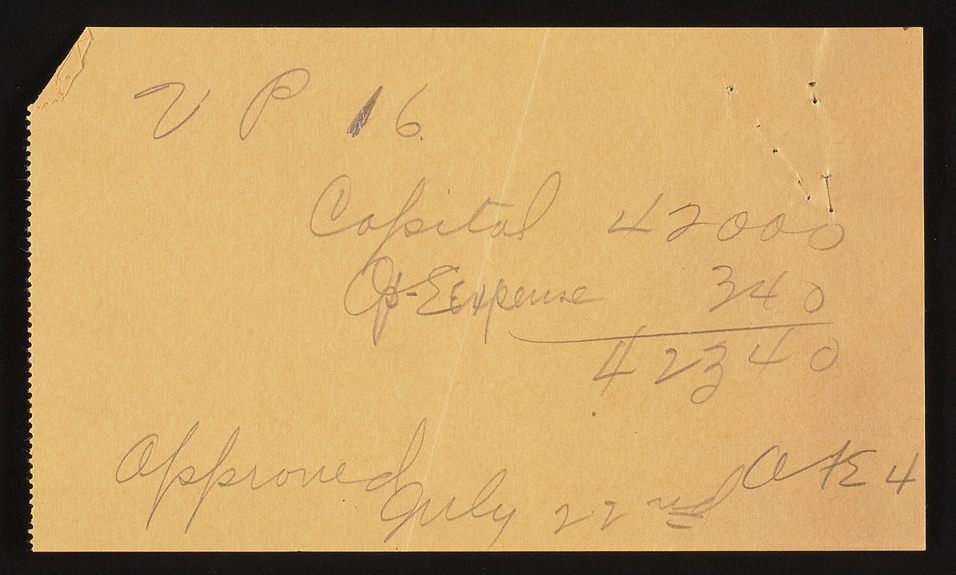 V P 16.
Capital 42000
Op-Expense 340
42340
Approved July 22nd AFE 4